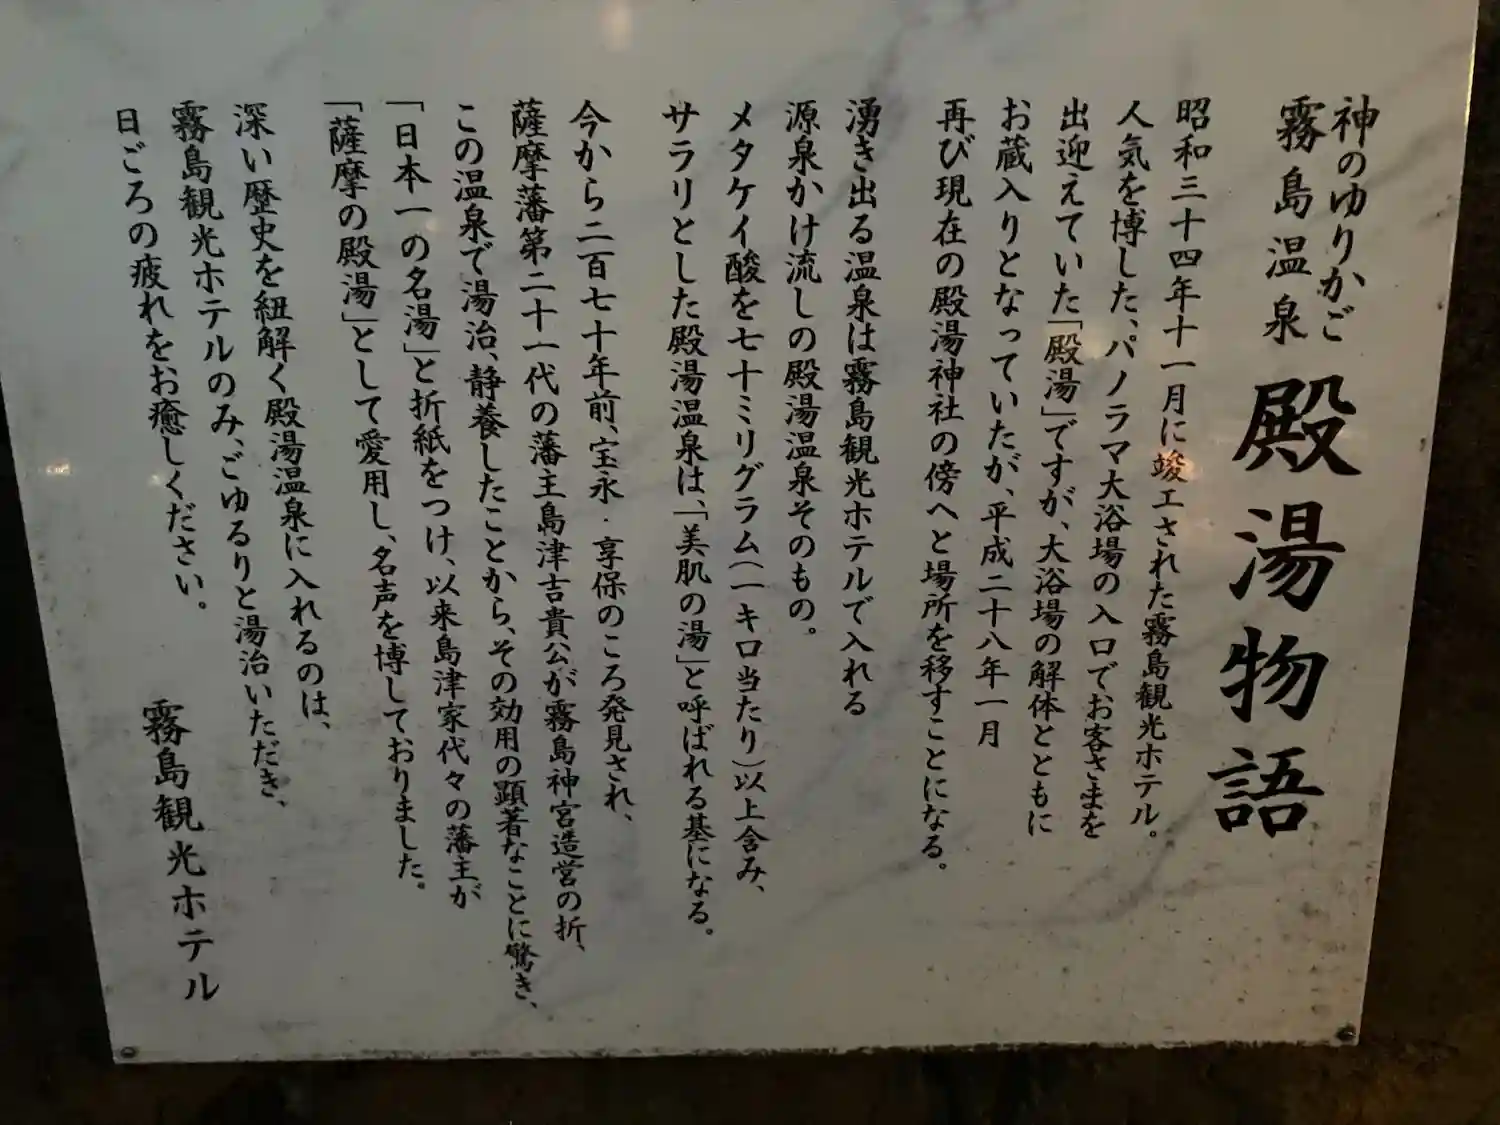 神のゆりかご
霧島温泉
殿湯物語
昭和三十四年十一月に竣工された霧島観光ホテル。
人気を博した、パノラマ大浴場の入口でお客さまを
出迎えていた「殿湯」ですが、大浴場の解体とともに
お蔵入りとなっていたが、平成二十八年一月
再び現在の殿湯神社の傍へと場所を移すことになる。
湧き出る温泉は霧島観光ホテルで入れる
源泉かけ流しの殿湯温泉そのもの。
メタケイ酸を七十ミリグラム(一キロ当たり)以上含み、
サラリとした殿湯温泉は、「美肌の湯」と呼ばれる基になる。
今から二百七十年前、宝永・享保のころ発見され、
薩摩藩第二十一代の藩王島津吉貴公が霧島神宮造営の折、
この温泉で湯治、静養したことから、その効用の顕著なことに驚き、
「日本一の名湯」と折紙をつけ、以来島津家代々の藩主が
「薩摩の殿湯」として愛用し、名声を博しておりました。
深い歴史を紐解く殿湯温泉に入れるのは、
霧島観光ホテルのみ、ごゆるりと湯治いただき、
日ごろの疲れをお癒しください。
霧島観光ホテル